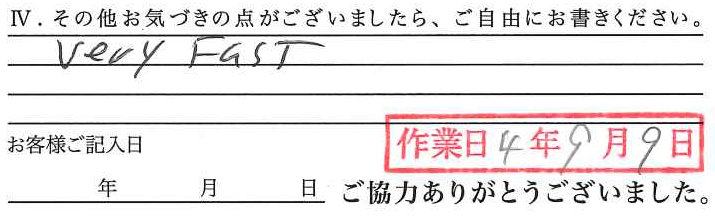 Ⅳ．その他お気づきの点がございましたら、ご自由にお書きください。
Very FAST
お客様ご記入日
作業日4年9月9日
年 月 日 ご協力ありがとうございました。